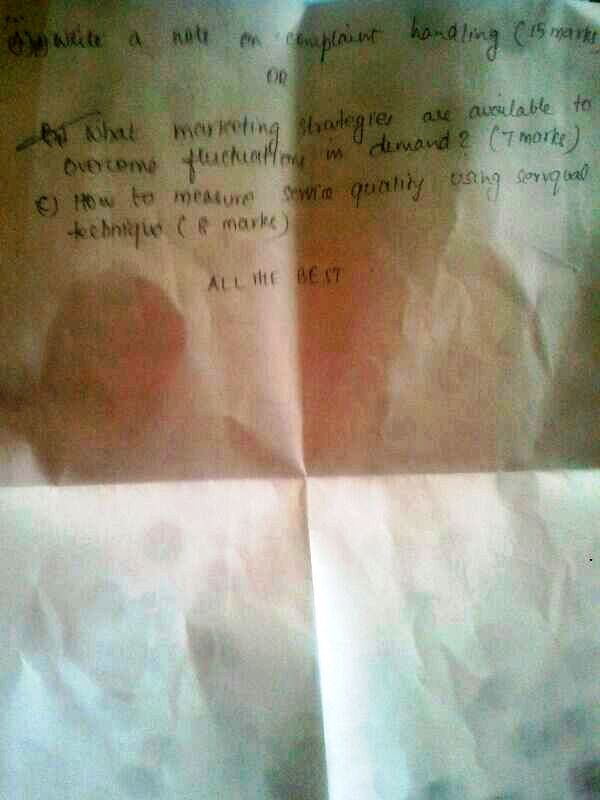 Write a note on complaint handling (15 marks
OR
B) What marketing strategies are available to
overcome fluctuations in demand? (7 marks)
C) How to measure service quality using servqual
technique (8 marks)
ALL THE BEST